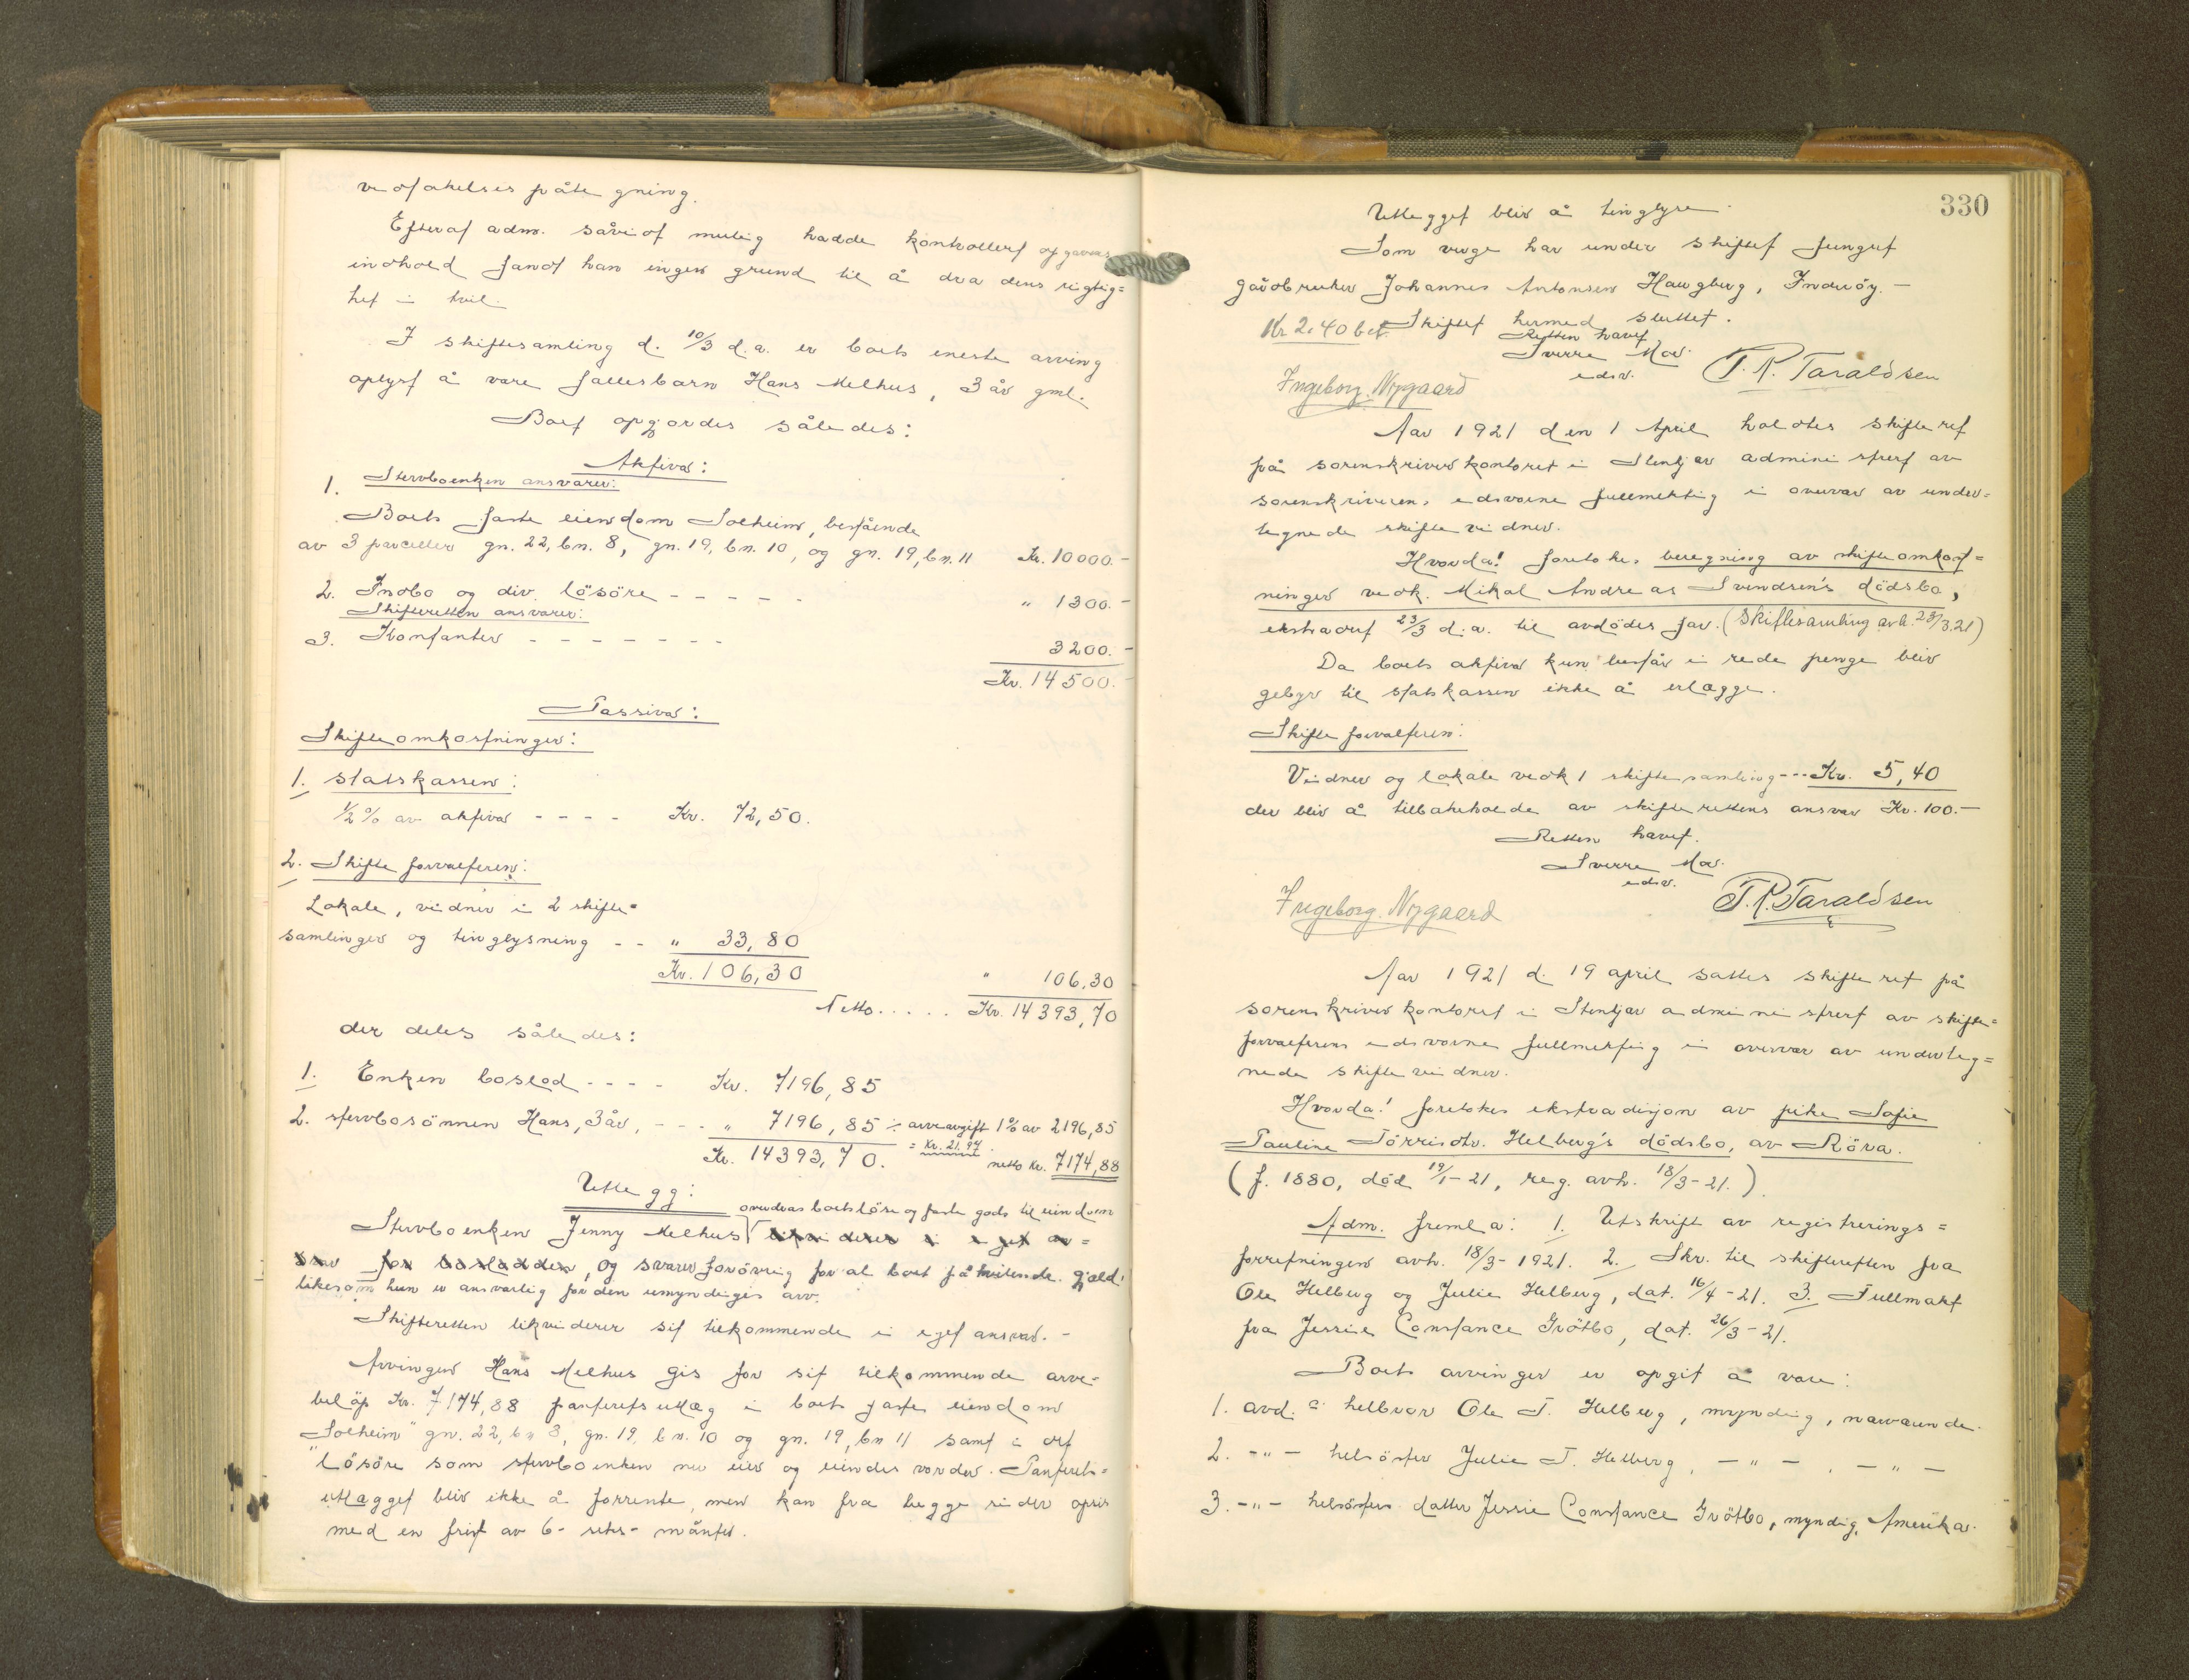 vedtakelses påtegning.
Efterat adm. såvidt mulig hadde kontrollert opgavens
indhold fandt han ingen grund til å dra dens rigtig=
het i tvil.
I skiftesamling d. 10/3 d.a. er boets eneste arving
oplyst å være fællesbarn Hans Melhus, 3 år gml.
Boet opgjordes således:
Aktiva:
1. Stervboenken ansvarer:
Boets faste eiendom Solheim, bestående
av 3 parceller gn. 22, bn. 8, gn. 19, bn. 10, og gn. 19, bn. 11 Kr. 10000.-
2. Indbo og div. lösöre - - - - - " 1300.-
Skifteretten ansvarer:
3. Kontanter - - - - - - - 3200.-
Kr. 14500.-
Passiva:
Skifteomkostninger:
1. statskassen:
1/2 % av aktiva - - - - Kr. 72,50.
2. Skifteforvalteren:
Lokale, vidner i 2 skifte=
samlinger og tinglysning - - " 33,80
Kr. 106,30 " 106,30
Netto . . . . . Kr. 14393,70
der deles således:
1. Enken boslod - - - - Kr. 7196,85
2. stervbosönnen Hans, 3 år, - - - " 7196,85 ÷ arveavgift 1% av 2196,85
= Kr. 21,97
Kr. 14393,70. netto kr. 7174,88
Utlegg:
overdras boets löse og faste gods til eiendom
Stervboenken Jenny Melhus likviderer i eget an=
svar for boslodden, og svarer forövrig for al boet påhvilende gjæld,
likesom hun er ansvarlig for den umyndiges arv.
Skifteretten likviderer sit tilkommende i eget ansvar.-
Arvingen Hans Melhus gis for sit tilkommende arve-
belöp Kr. 7174,88 panteretsutlæg i boets faste eiendom
"Solheim" gn. 22, bn 8, gn. 19, bn. 10 og gn. 19, bn 11 samt i det
lösöre som stervboenken nu eier og eiendes vorder. Panterets=
utlægget blir ikke å forrente, men kan fra begge sider opsies
med en frist av 6- seks- månter.
330
Utlegget blir å tinglyse.
Som verge har under skiftet fungert
gårdbruker Johannes Antonsen Haugberg, Inderöy.-
Kr 2,40 bet. Skiftet hermed sluttet.
Retten hævet
Sverre Mo.
edsv.
T. R. Taraldsen
Ingeborg Nygaard
Aar 1921 den 1 April holdtes skifteret
på sorenskriverkontoret i Stenkjær administrert av
sorenskriverens edsvorne fullmektig i overvær av under=
tegnede skiftevidner.
Hvorda! foretokes beregning av skifteomkost=
ninger vedk. Mikal Andreas Svendsen's dödsbo,
ekstradert 23/3 d.a. til avdödes far. (Skiftesamling avh. 23/3.21)
Da boets aktiva kun består i rede penge blir
gebyr til statskassen ikke å erlægge.
Skifteforvalteren:
Vidner og lokale vedk 1 skiftesamling --- Kr. 5,40
der blir å tilbakeholde av skifterettens ansvar Kr. 100.-
Retten hævet.
Sverre Mo.
edsv.
T. R. Taraldsen
Ingeborg Nygaard
Aar 1921 d. 19 april sattes skifteret på
sorenskriverkontoret i Stenkjær administrert av skifte=
forvalterens edsvorne fullmektig i overvær av underteg=
nede skiftevidner.
Hvorda! foretokes ekstradisjon av pike Sofie
Pauline Törrisdtr. Helberg's dödsbo, av Röva.
(f. 1880, död 19/1-21, reg. avh. 18/3-21.).
Adm. fremla: 1. Utskrift av registrerings=
forretningen avh. 18/3-1921. 2. Skr. til skifteretten fra
Ole Helberg og Julie Helberg, dat. 16/4-21. 3. Fullmakt
fra Jessie Constance Grötbo, dat. 26/3-21.
Boets arvinger er opgit å være:
1. avd.s helbror Ole T. Helberg, myndig, nærværende.
2. -"- helsöster Julie T. Helberg, -"-, -"-
3. -"- helsösters datter Jessie Constance Grötbo, myndig, Amerika.